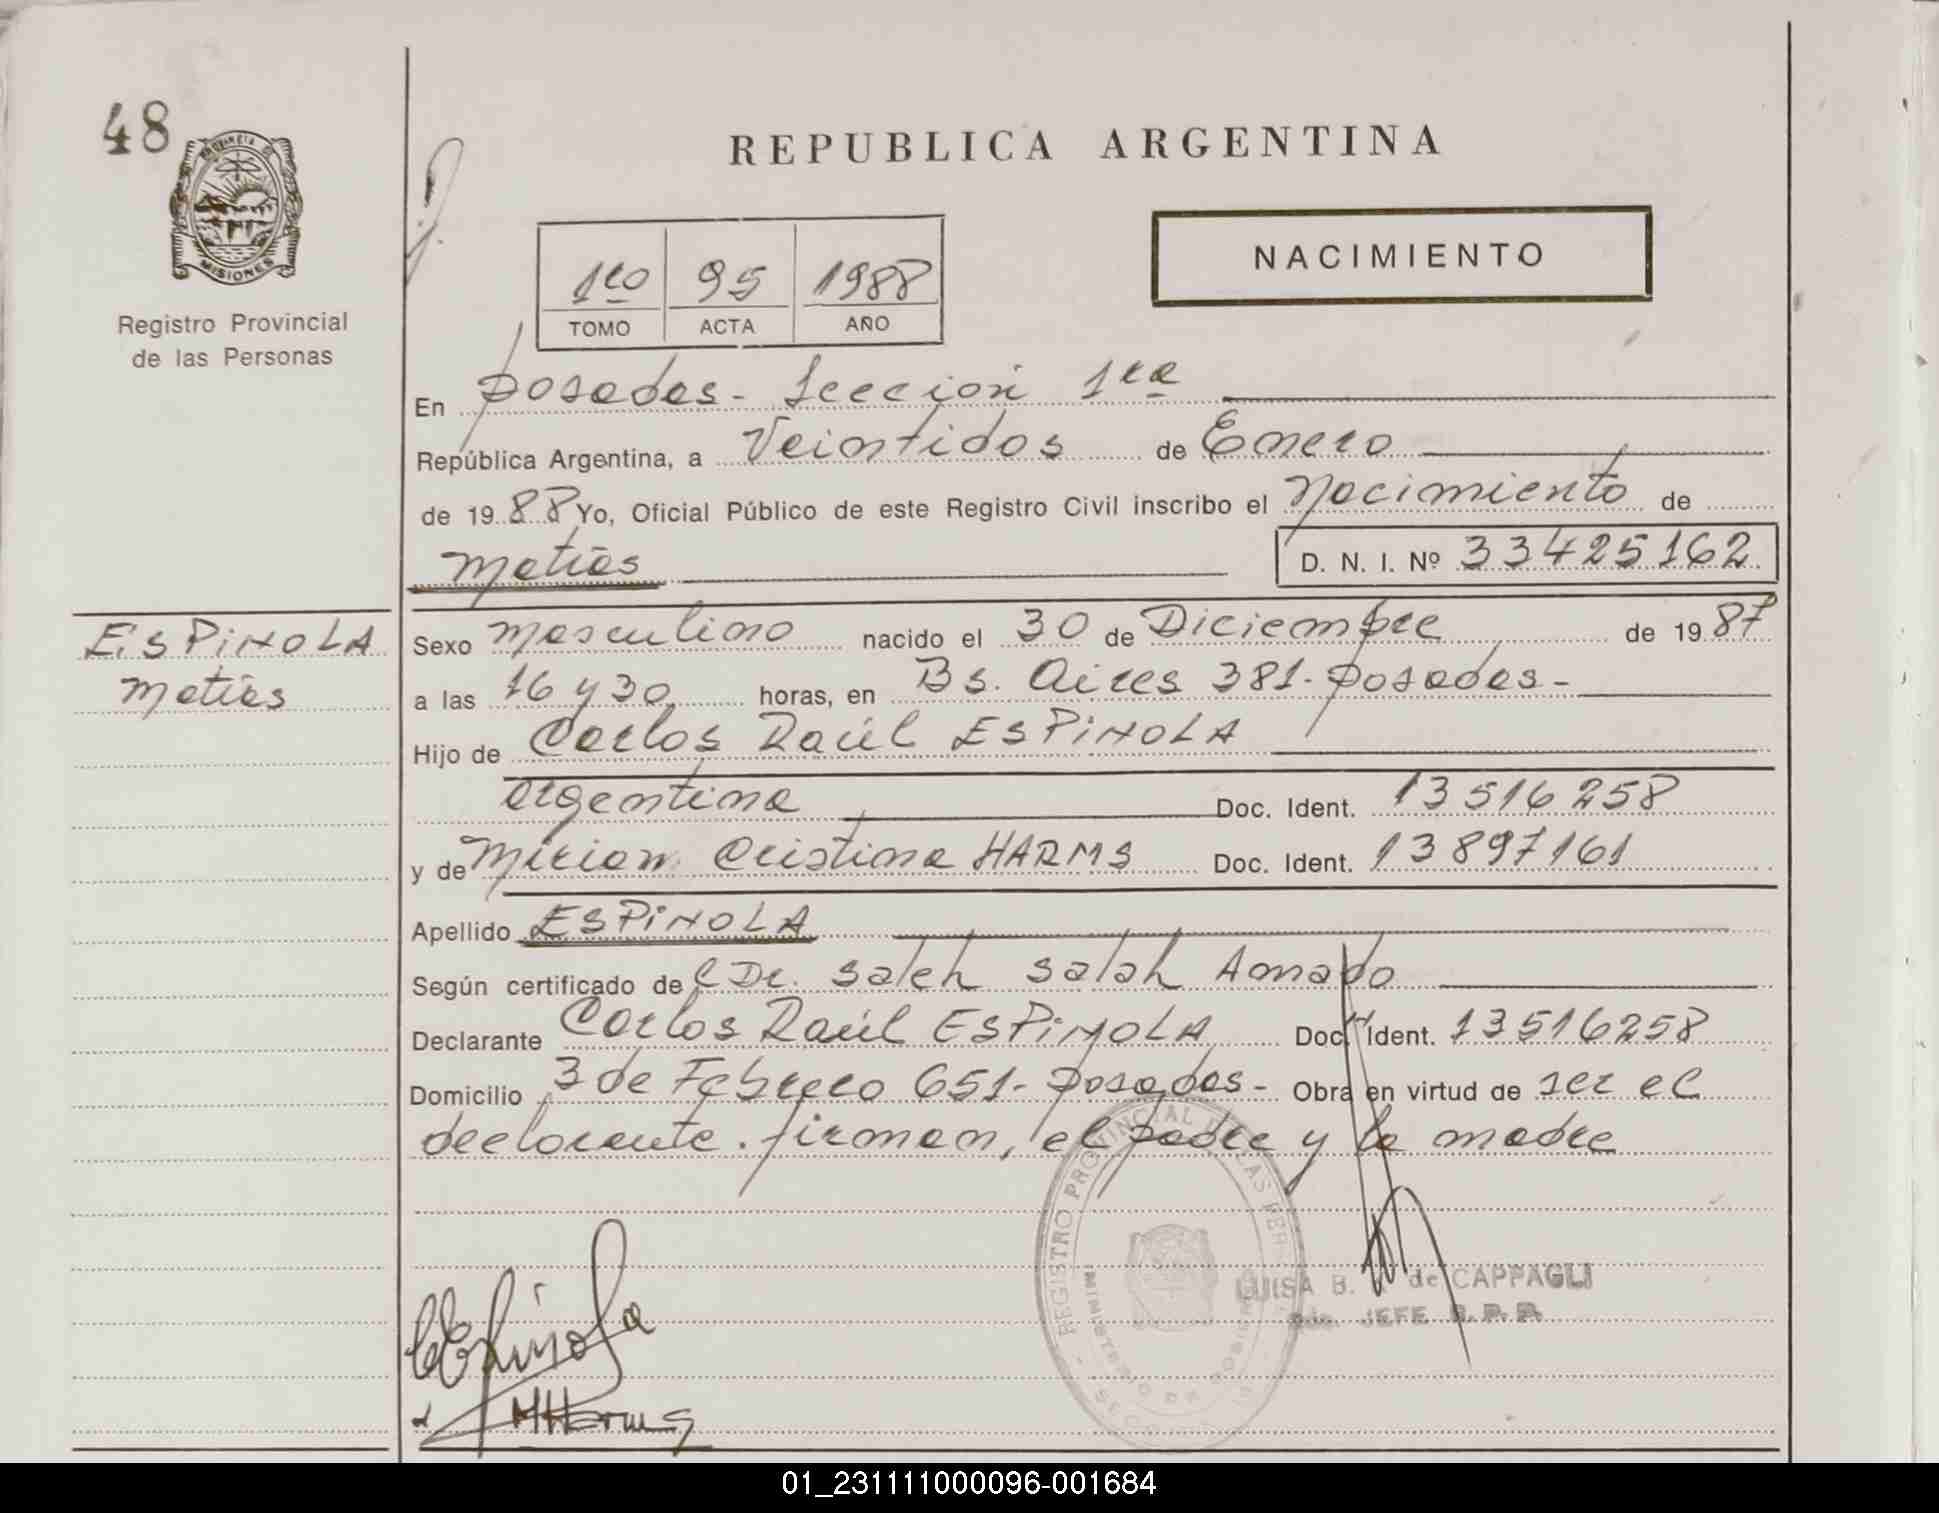 48
PROVINCIA DE
MISIONES
Registro Provincial
de las Personas
REPUBLICA ARGENTINA
NACIMIENTO
1ro 95 1988
TOMO ACTA AÑO
En Posadas - Sección 1ra
República Argentina, a Veintidos de Enero
de 1988 Yo, Oficial Público de este Registro Civil inscribo el Nacimiento de
Matías D. N. I. Nº 33425162
ESPiNOLA
Matías
Sexo masculino nacido el 30 de Diciembre de 1987
a las 16 y 30 horas, en Bs. Aires 381 - Posadas -
Hijo de Carlos Raúl ESPiNOLA
argentina Doc. Ident. 13516258
y de Miriam Cristina HARMS Doc. Ident. 13897161
Apellido ESPiNOLA
Según certificado de Dr. Saleh Salah Amado
Declarante Carlos Raúl ESPiNOLA Doc. Ident. 13516258
Domicilio 3 de Febrero 651 - Posadas - Obra en virtud de ser el
declarante. firman, el padre y la madre
REGISTRO PROVINCIAL DE LAS PERS
MINISTERIO DE GOBIERNO
LUISA B. de CAPPAGLI
JEFE R. P. P.
CEspinola
MHarms
01_231111000096-001684